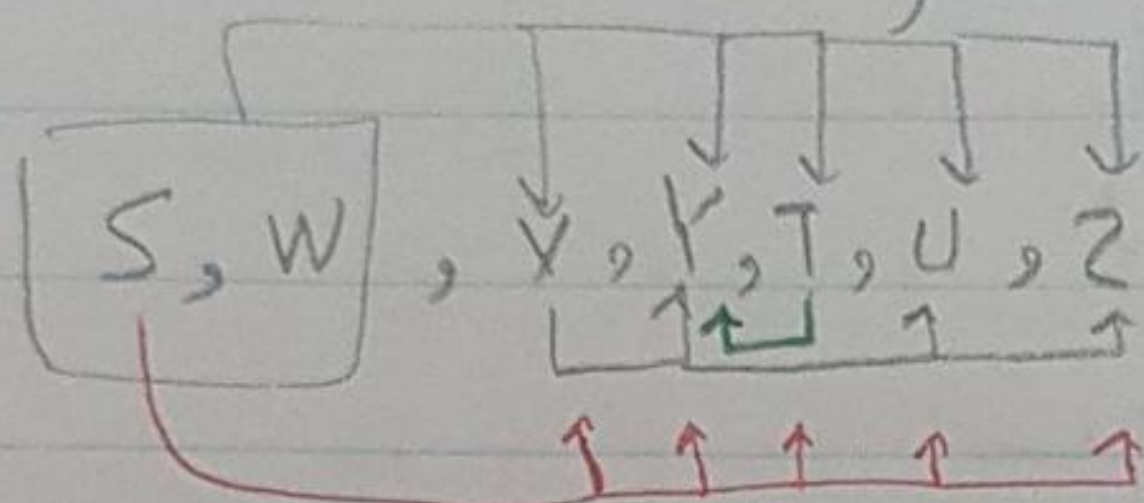 S, W, X, Y, T, U, Z